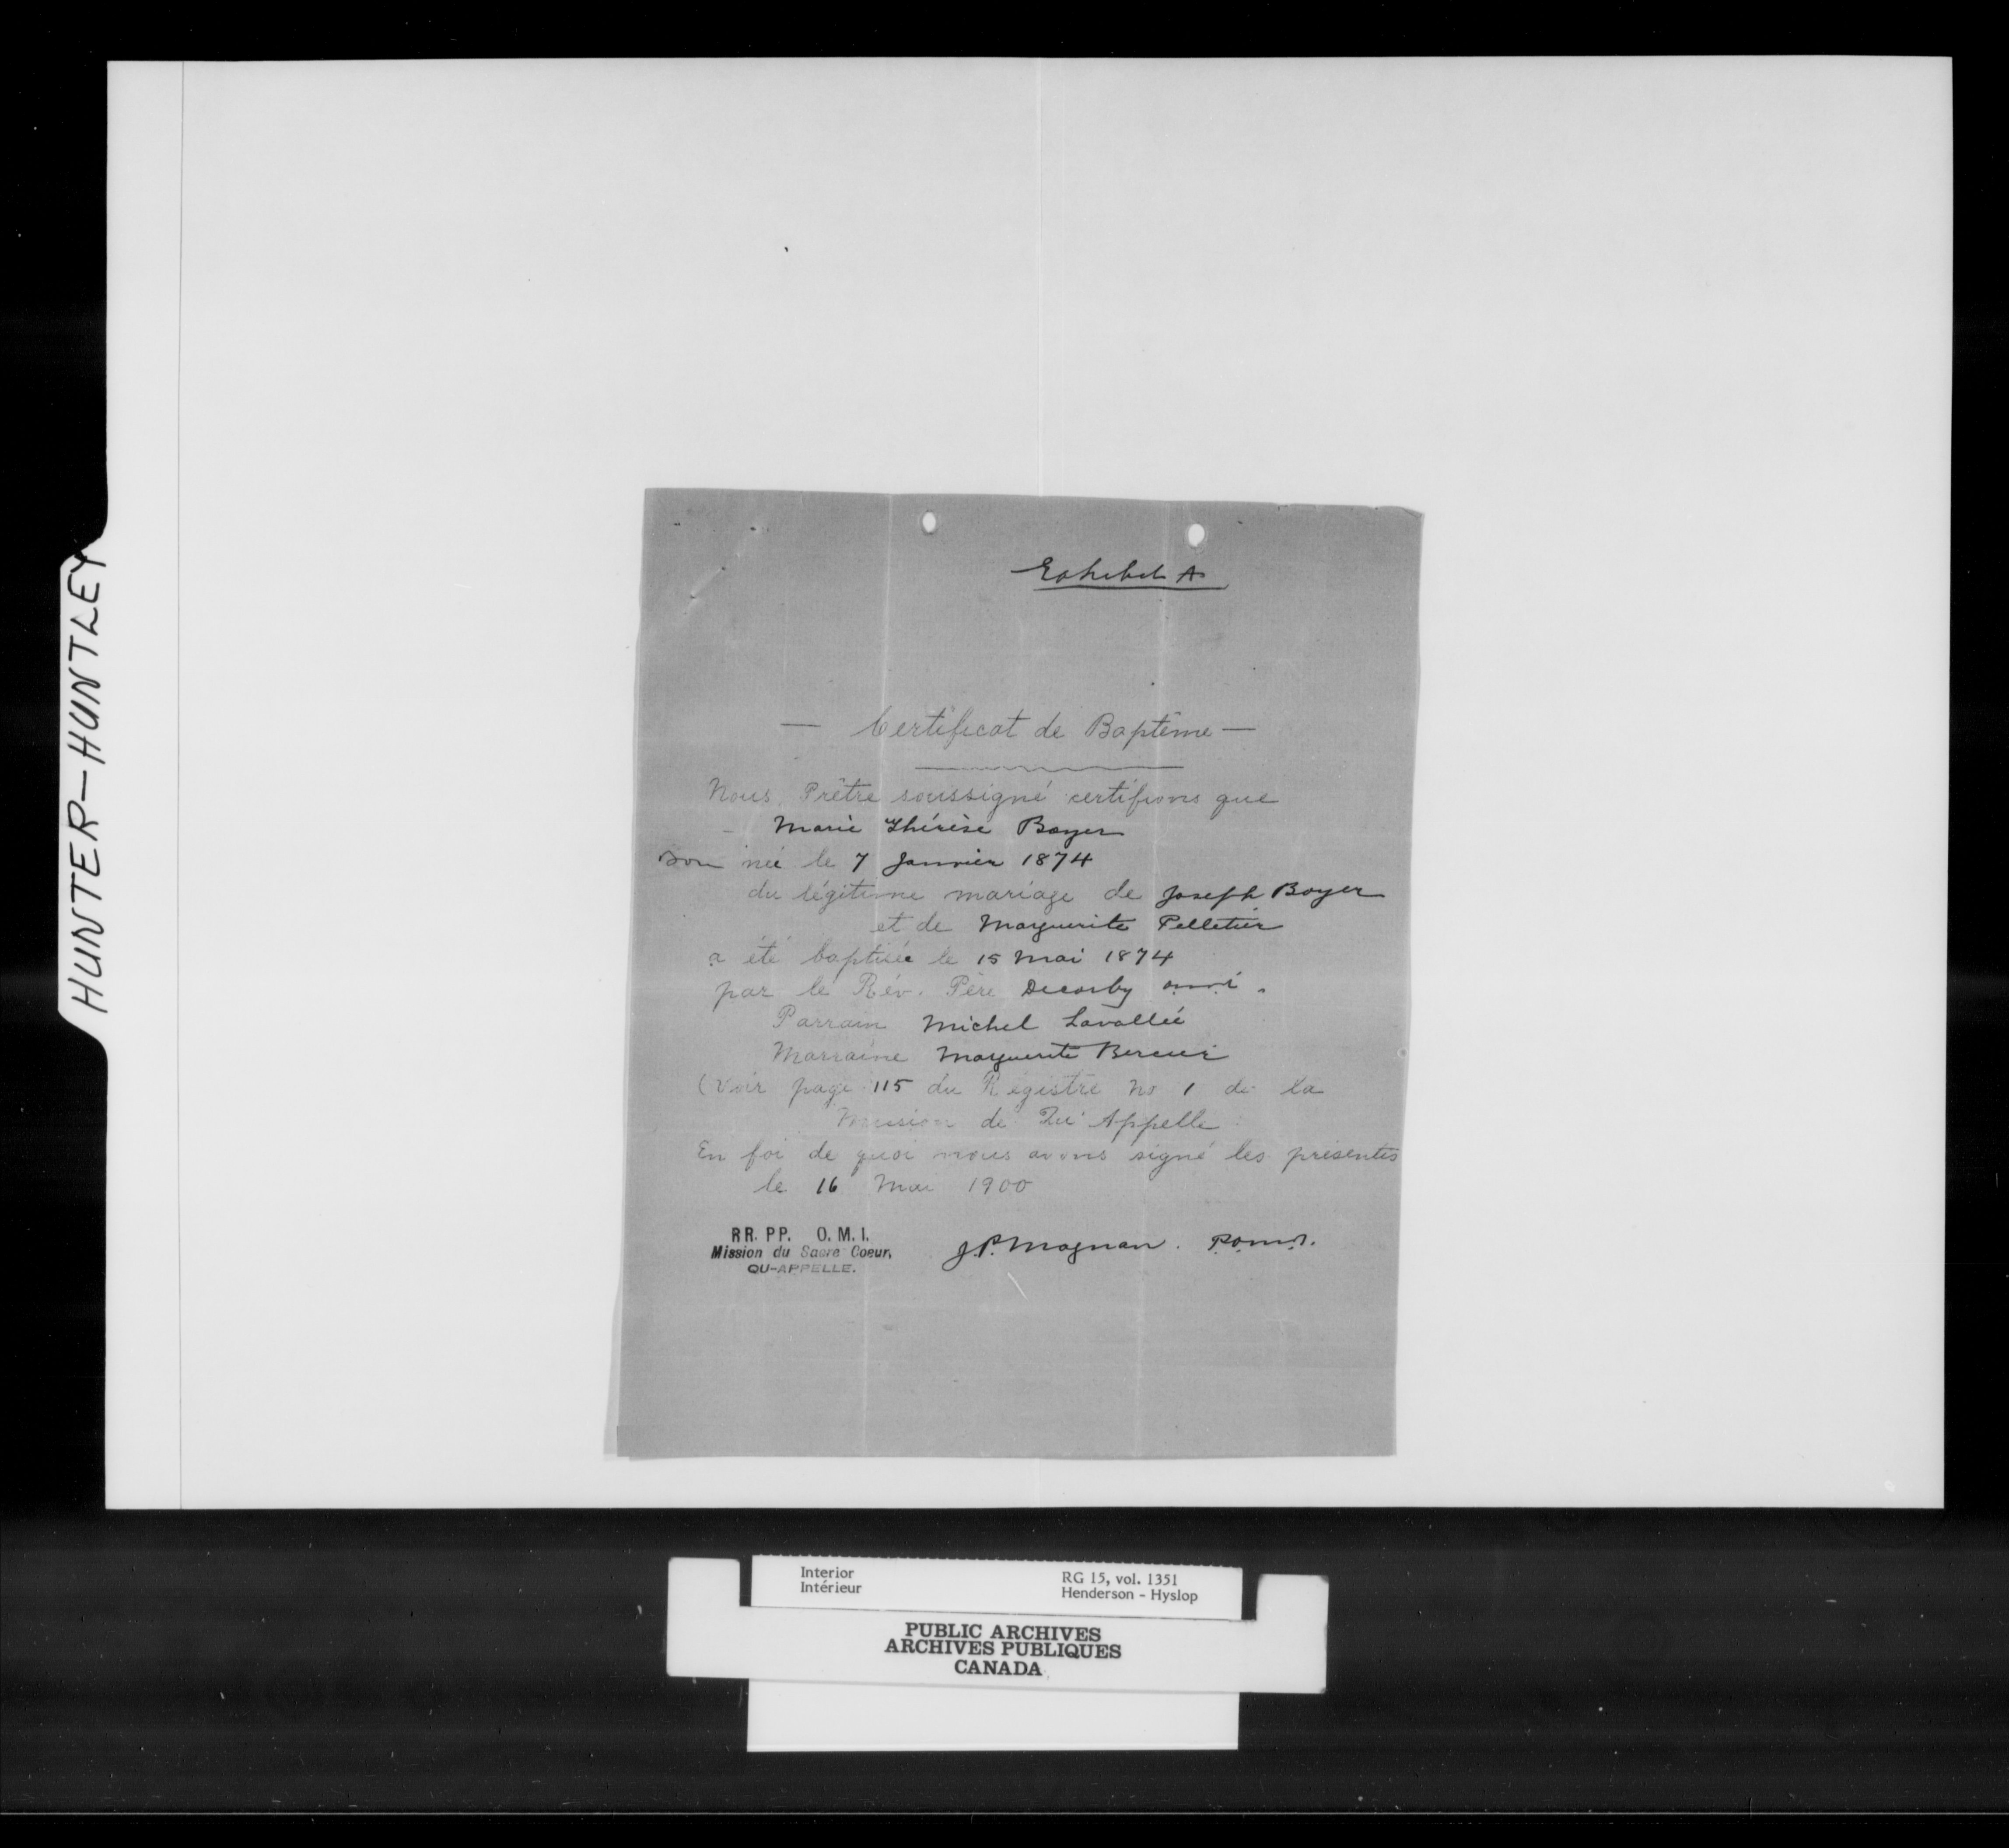 HUNTER-HUNTLEY
Exhibit A
— Certificat de Baptême —
Nous, Prêtre soussigné certifions que
Marie Thérèse Boyer
Born née le 7 Janvier 1874
du légitime mariage de Joseph Boyer
et de Marguerite Pelletier
a été baptisée le 15 Mai 1874
par le Rév. Père Decorby o.m.i.
Parrain Michel Lavallée
Marraine Marguerite Bercier
(Voir page 115 du Régistre No 1 de la
Mission de Qu'Appelle
En foi de quoi nous avons signé les présentes
le 16 Mai 1900
RR. PP. O. M. I.
Mission du Sacre Coeur,
QU-APPELLE.
J.P. Magnan. P.o.m.i.
Interior
Intérieur
RG 15, vol. 1351
Henderson - Hyslop
PUBLIC ARCHIVES
ARCHIVES PUBLIQUES
CANADA